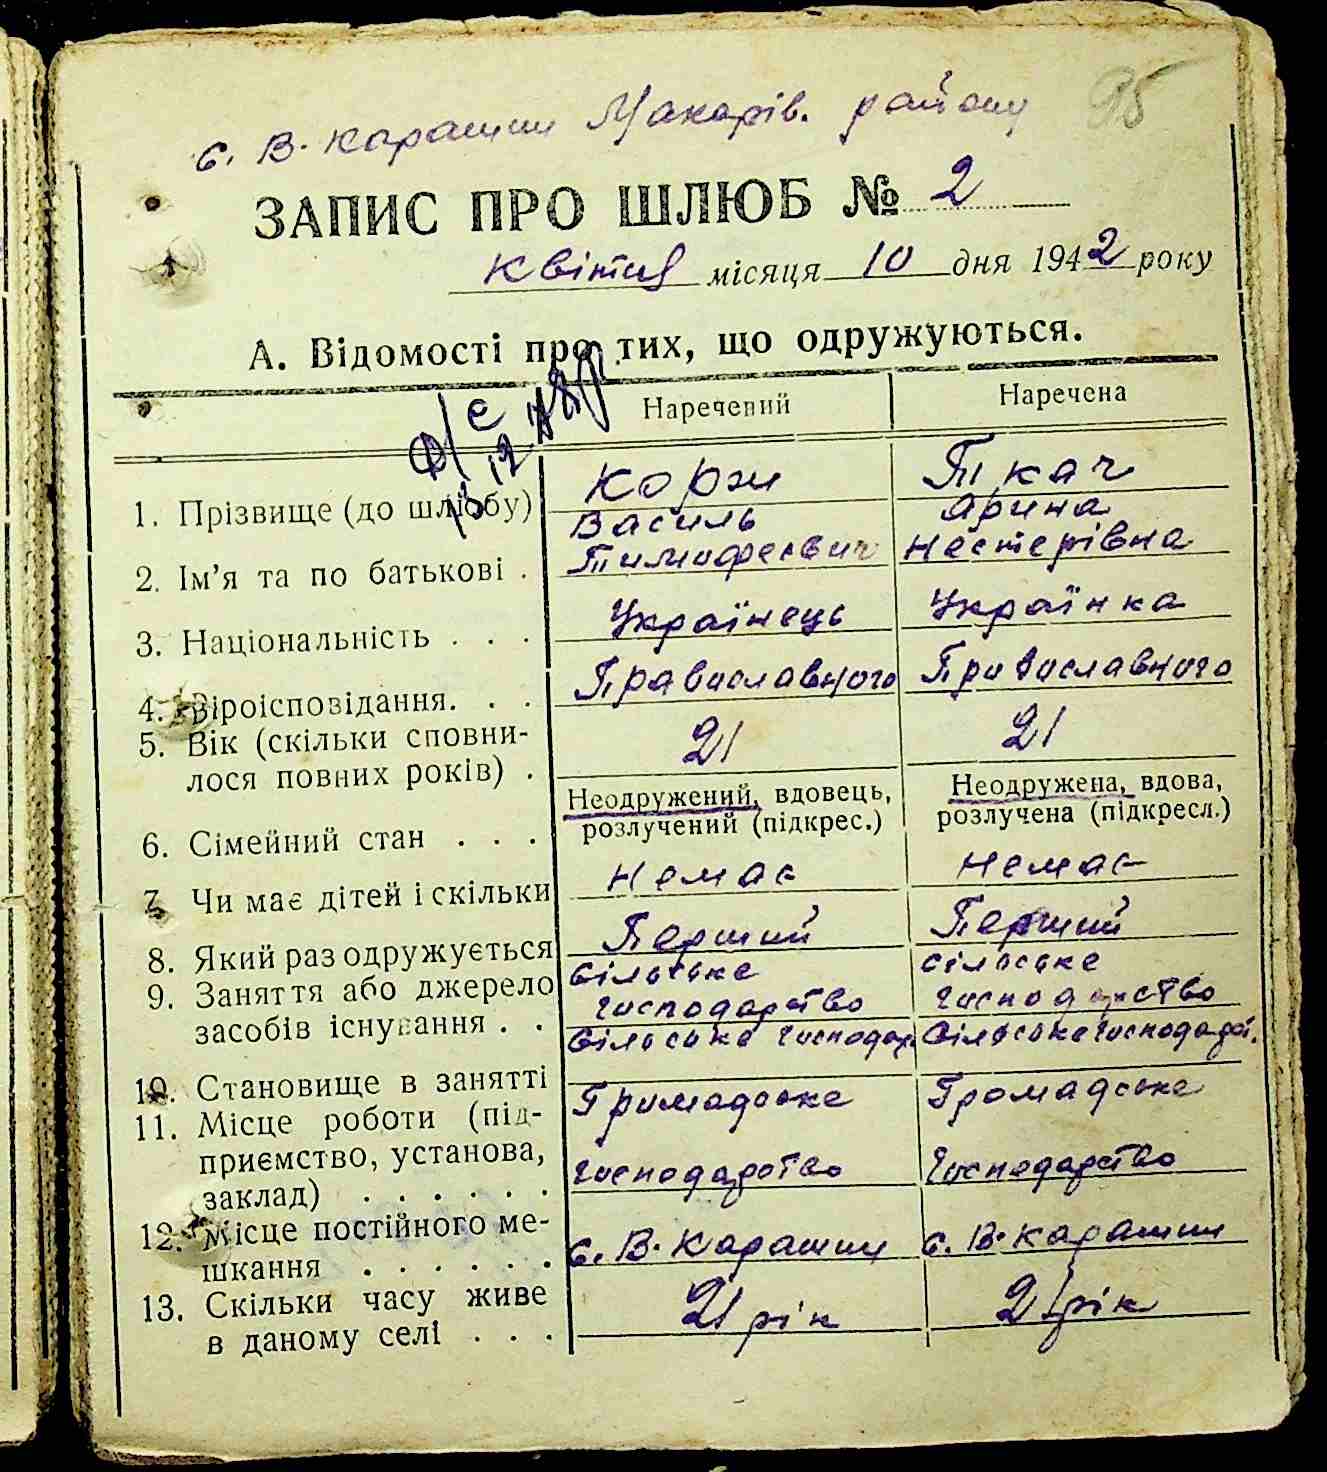 с. В. Карашин Макарів. району 95
ЗАПИС ПРО ШЛЮБ № 2
квітня місяця 10 дня 1942 року
А. Відомості про тих, що одружуються.
Наречений Наречена
ф/с
1. Прізвище (до шлюбу) Корж Ткач
Василь Арина
2. Ім'я та по батькові . Тимофеєвич Нестерівна
3. Національність . . . Українець Українка
4. Віроісповідання. . . Православного Православного
5. Вік (скільки сповни- 21 21
лося повних років) .
Неодружений, вдовець, Неодружена, вдова,
6. Сімейний стан . . . розлучений (підкрес.) розлучена (підкресл.)
7. Чи має дітей і скільки Немає Немає
8. Який раз одружується Перший Перший
9. Заняття або джерело Сільське Сільське
засобів існування . . господарство господарство
10. Становище в занятті Сільське господар. Сільське господар.
11. Місце роботи (під- Громадське Громадське
приємство, установа,
заклад) . . . . . . господарство господарство
12. Місце постійного ме-
шкання . . . . . . с. В. Карашин с. В. Карашин
13. Скільки часу живе 21 рік 21 рік
в даному селі . . .